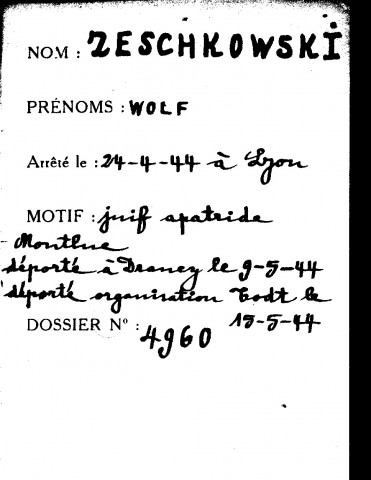 NOM : ZESCHKOWSKI
PRÉNOMS : WOLF
Arrêté le : 24-4-44 à Lyon
MOTIF : juif apatride
Montluc
déporté à Drancy le 9-5-44
déporté organisation Todt le
15-5-44
DOSSIER N° : 4960